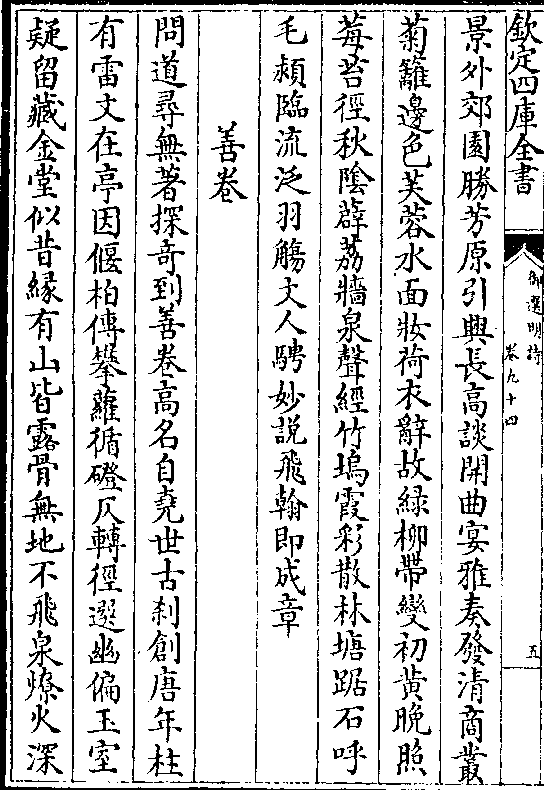 欽定四庫全書
御選明詩
卷九十四
五
景外郊園勝芳原引興長高談開曲宴雅奏發清商叢
菊籬邊色芙蓉水面妝荷衣辭故綠柳帶變初黃晚照
莓苔徑秋陰薜荔牆泉聲經竹塢霞彩散林塘踞石呼
毛穎臨流泛羽觴文人騁妙說飛翰即成章
善卷
問道尋無著探奇到善卷高名自堯世古刹創唐年柱
有雷文在亭因偃柏傳攀蘿循磴仄轉徑選幽偏玉室
疑留藏金堂似昔緣有山皆露骨無地不飛泉燎火深